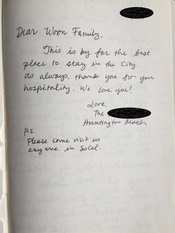 Dear Woon Family,
This is by far the best
place to stay in the City.
As always, thank you for your
hospitality. We love you!
Love,
The
Huntington Beach
P.S.
Please come visit us
anytime in SoCal.